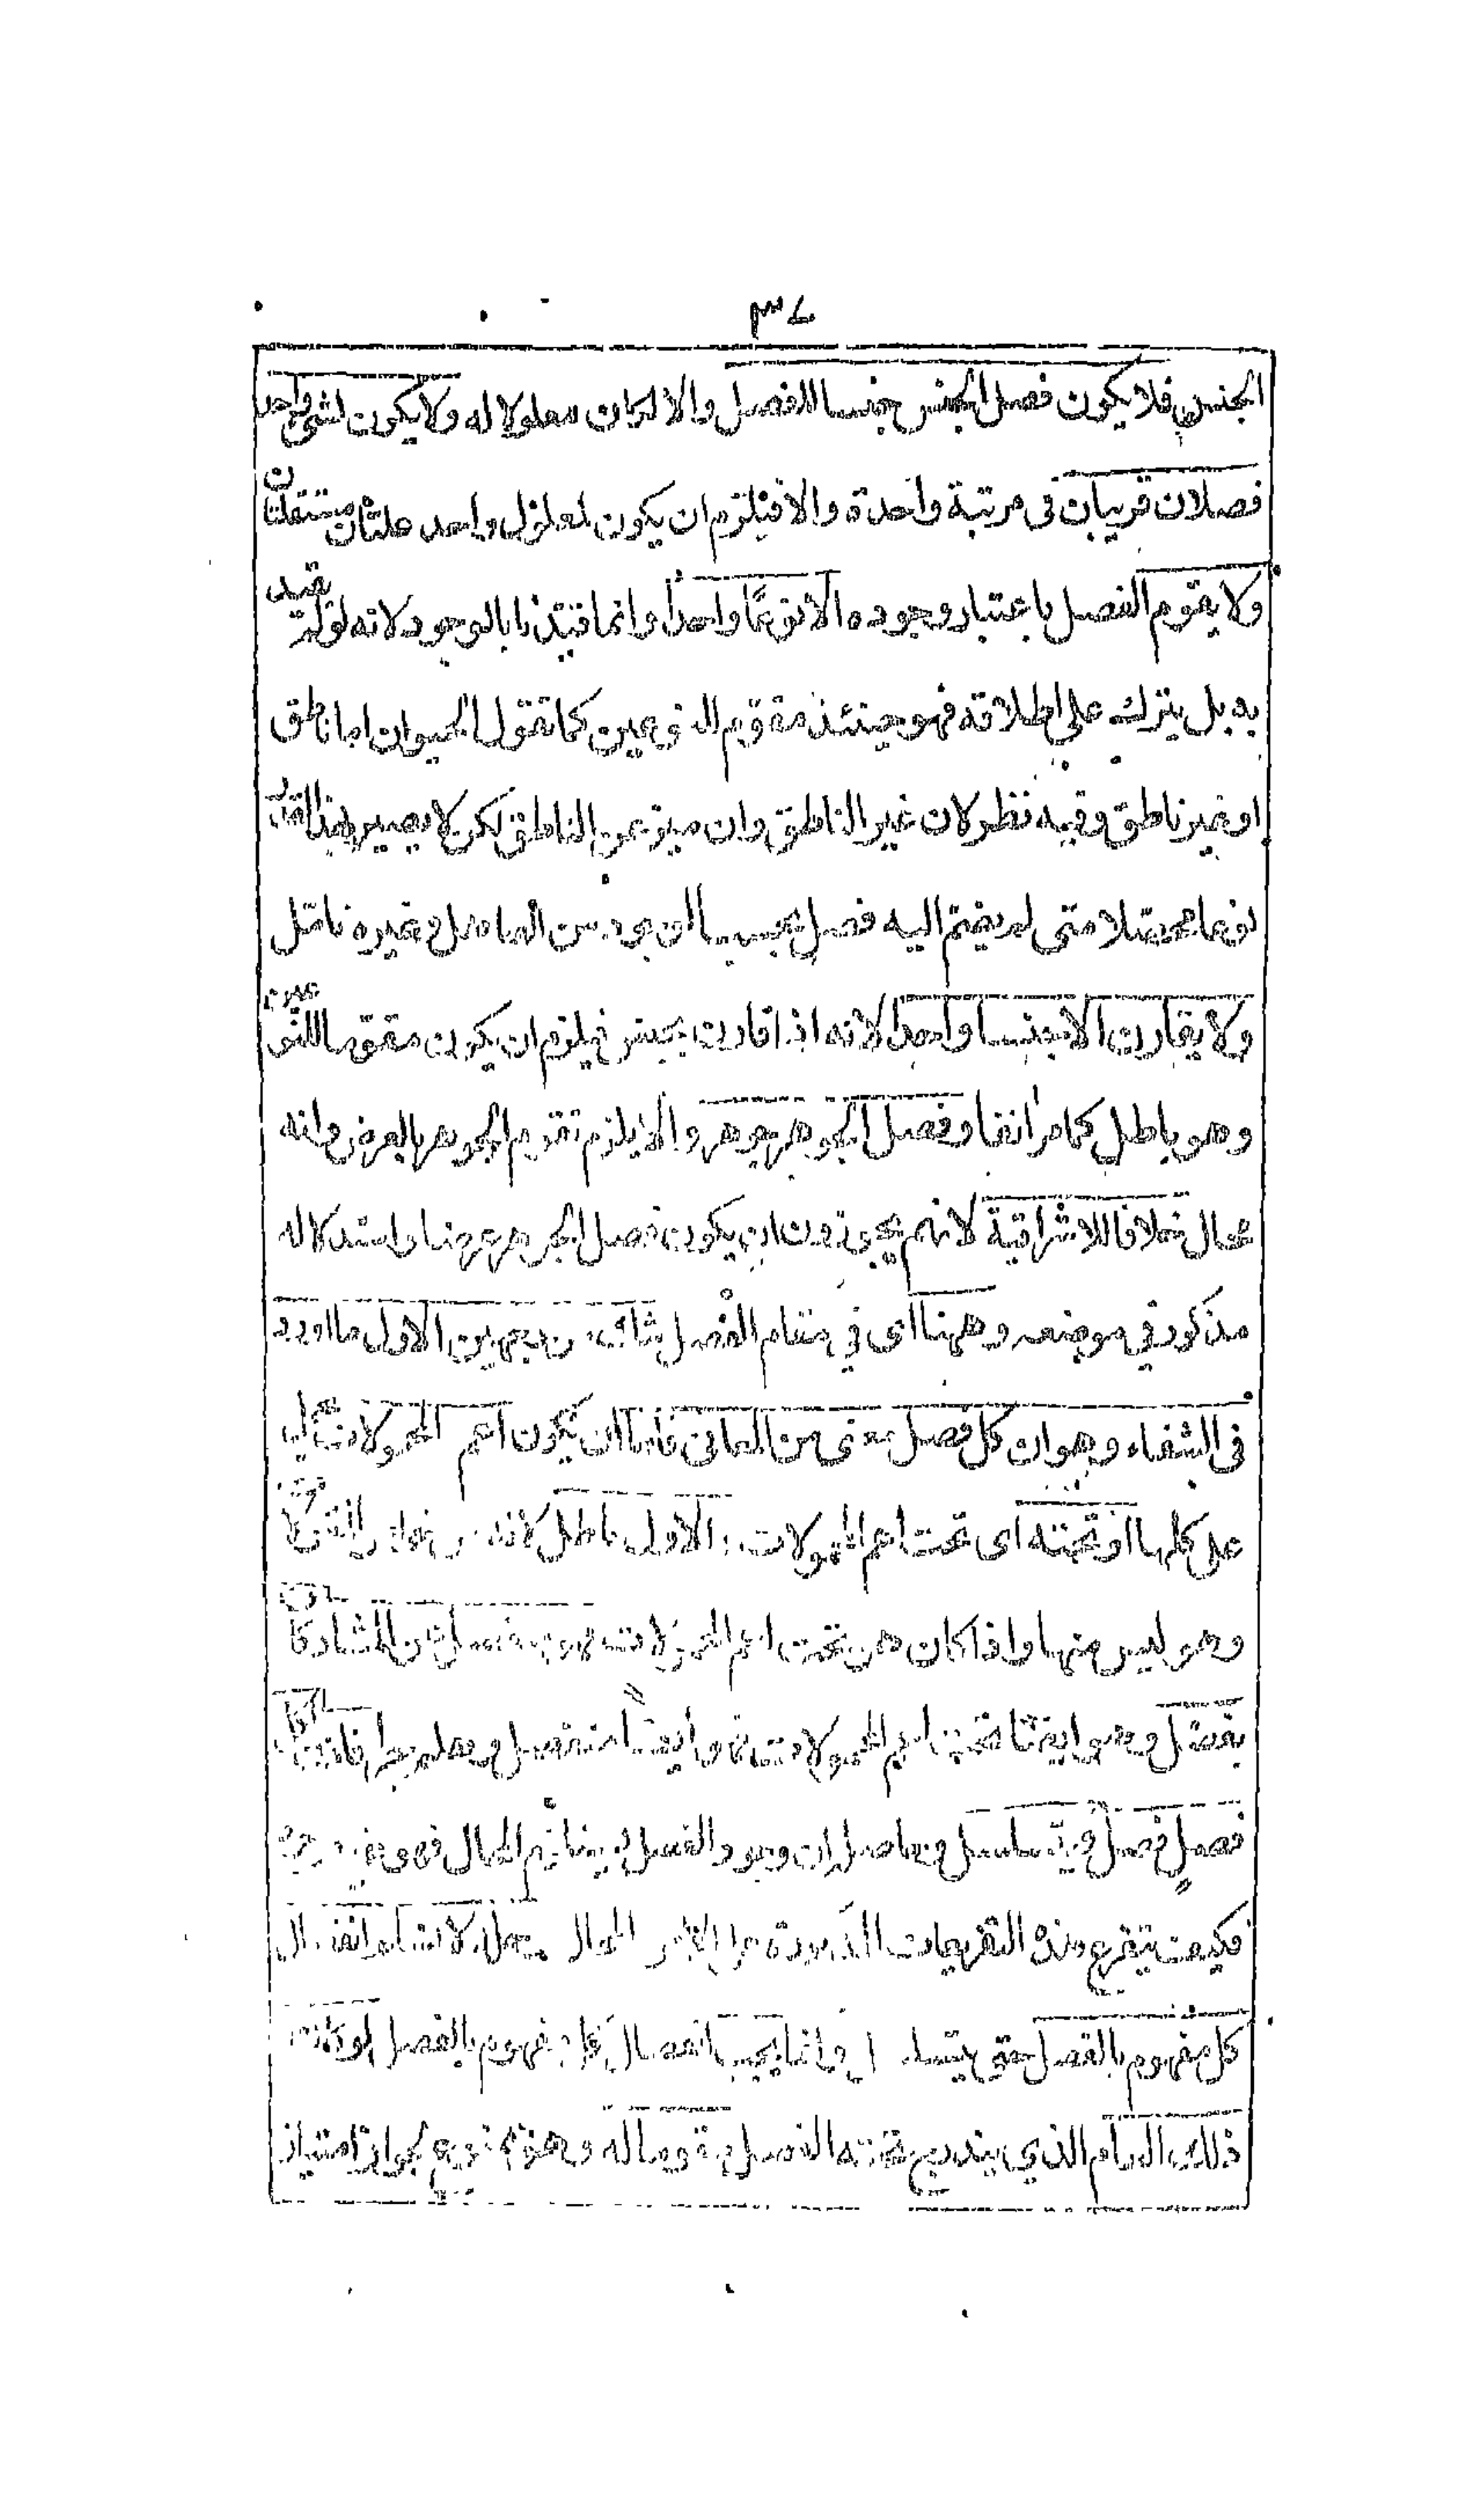 ٣٧
الجنس فلا يكون فصل الجنس جنسا للفصل والا لكان معلولا له ولا يكون لشيء واحد
فصلان قريبان في مرتبة واحدة والا فيلزم ان يكون لمعلول واحد علتان مستقلتان
ولا يقوم الفصل باعتبار وجوده الا نوعًا واحدا وانما قيدنا بالوجود لانه لو لم يقيد
به بل يترك على اطلاقه فهو حينئذ مقوم النوعين كما تقول الحيوان اما ناطق
او غير ناطق وفيه نظر لان غير الناطق وان ميز عن الناطق لكن لا يصير بهذا القدر
نوعا محصلا متى لم يضم اليه فصل بحسب الوجود من الصاهل وغيره فتامل
ولا يقارن الا جنسا واحدا لانه اذا قارن بجنس فيلزم ان يكون مقوما للنوعين
وهو باطل كما مر انفا وفصل الجوهر جوهر والا يلزم تقوم الجوهر بالعرض وانه
محال خلافا للاشراقية لانهم يجوزون ان يكون فصل الجوهر عرضا واستدلاله
مذكور في موضعه وههنا اى في مقام الفصل شك من وجهين الاول ما اورد
في الشفاء وهو ان كل فصل معنى من المعاني فاما ان يكون اعم المحمولات
على كلها او تحته اى تحت اعم المحمولات والاول باطل لانه
وهو ليس منها واذا كان هو تحت اعم المحمولات فهو منفصل عن المشاركات
بفصل وهو ايضا تحت اعم المحمولات فهو ايضا منفصل وهلم جرا فاذن لكل
فصل فصل ويتسلسل وحاصله ان وجود الفصل يستلزم المحال فهو
فكيف يتفرع هذه التفريعات المذكورة على الامر المحال وحله لا نسلم انفصال
كل مفهوم بالفصل حتى يتسلسل وانما يجب انفصال كل مفهوم بالفصل لو كان
ذلك العام الذي يندرج تحته الفصل مقوما له وهو ممنوع لجواز امتياز